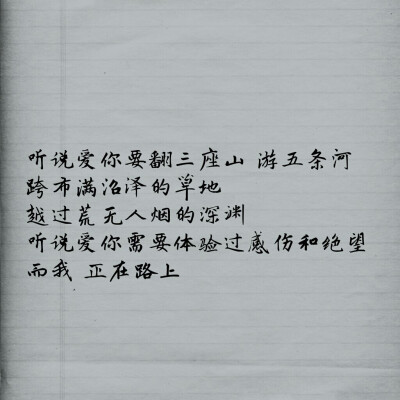 听说爱你要翻三座山 游五条河
跨布满沼泽的草地
越过荒无人烟的深渊
听说爱你需要体验过感伤和绝望
而我 正在路上